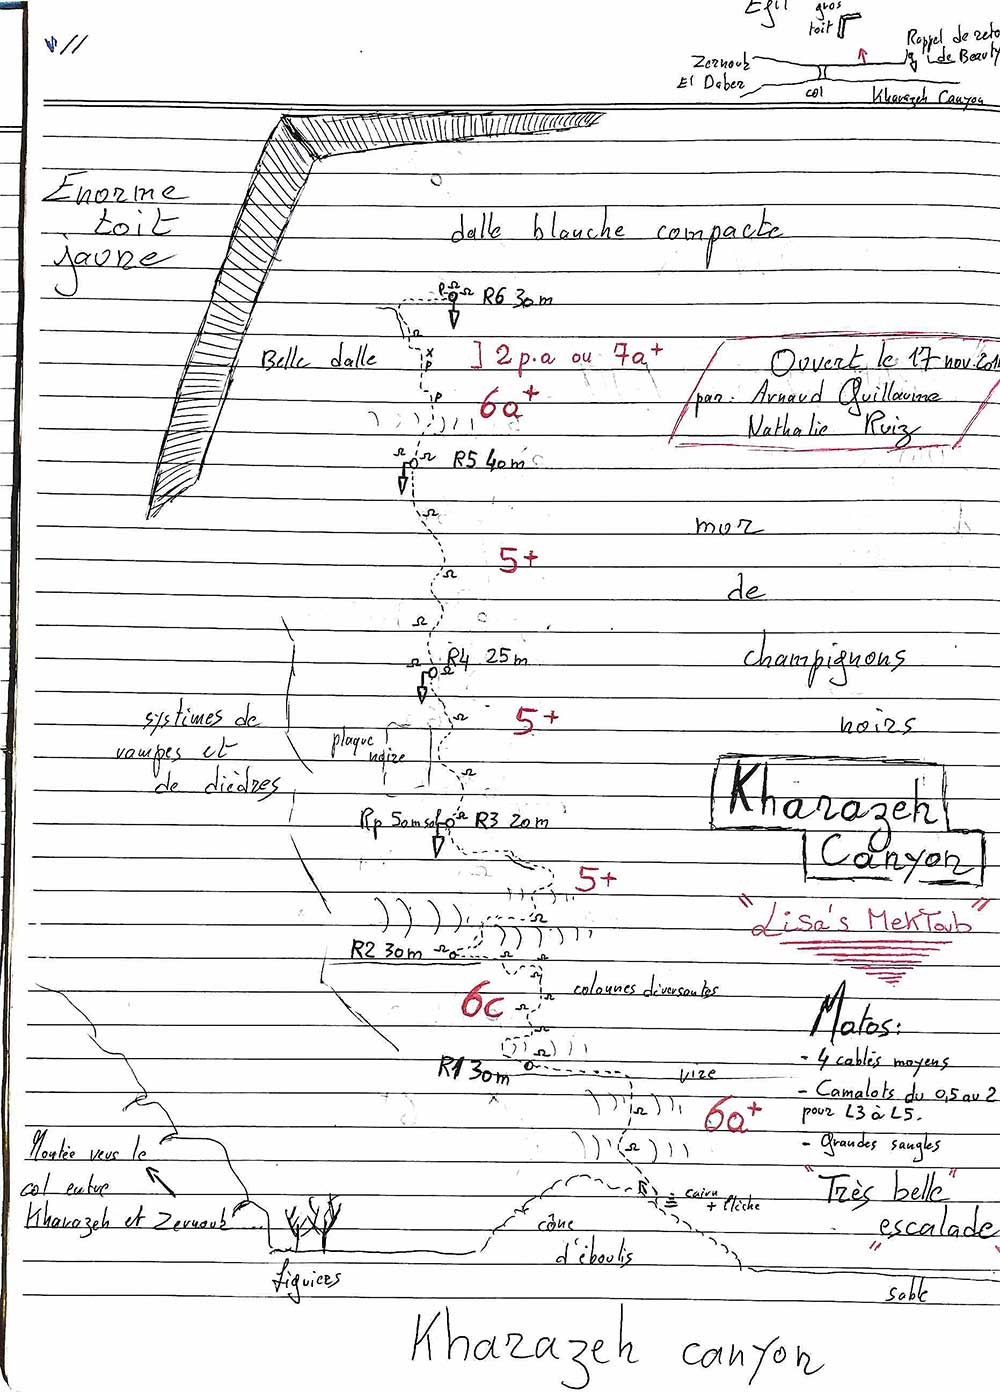 gros
toit
Rappel de
de Beauty
Zernouk
El Daber
col
Kharazeh Canyon
Enorme
toit
jaune
dalle blanche compacte
R6 30m
Belle dalle
] 2 p.a ou 7a+
6a+
Ouvert le 17 nov.
par: Arnaud Guillaume
Nathalie Ruiz
R5 40m
mur
5+
de
R4 25m
champignons
systèmes de
rampes et
de dièdres
plaque
noire
5+
noirs
Kharazeh
Canyon
Rp 50m
R3 20m
5+
"Lisa's MekToub"
R2 30m
6c
colonnes déversantes
Matos:
- 4 cablés moyens
- Camalots du 0,5 au 2
pour L3 à L5.
- Grandes sangles
R1 30m
vire
6a+
Montée vers le
col entre
Kharazeh et Zernouk
"Très belle"
"escalade"
cairn
+ flèche
cône
d'éboulis
figuiers
sable
Kharazeh canyon